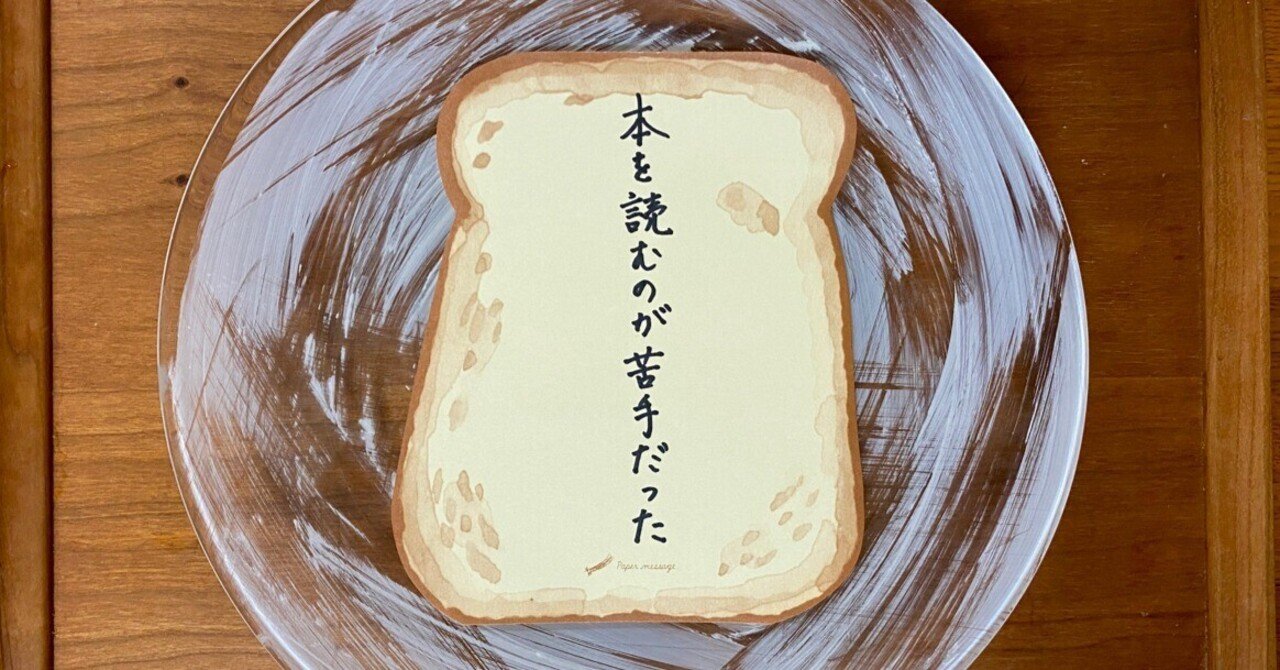 本を読むのが苦手だった
Paper message